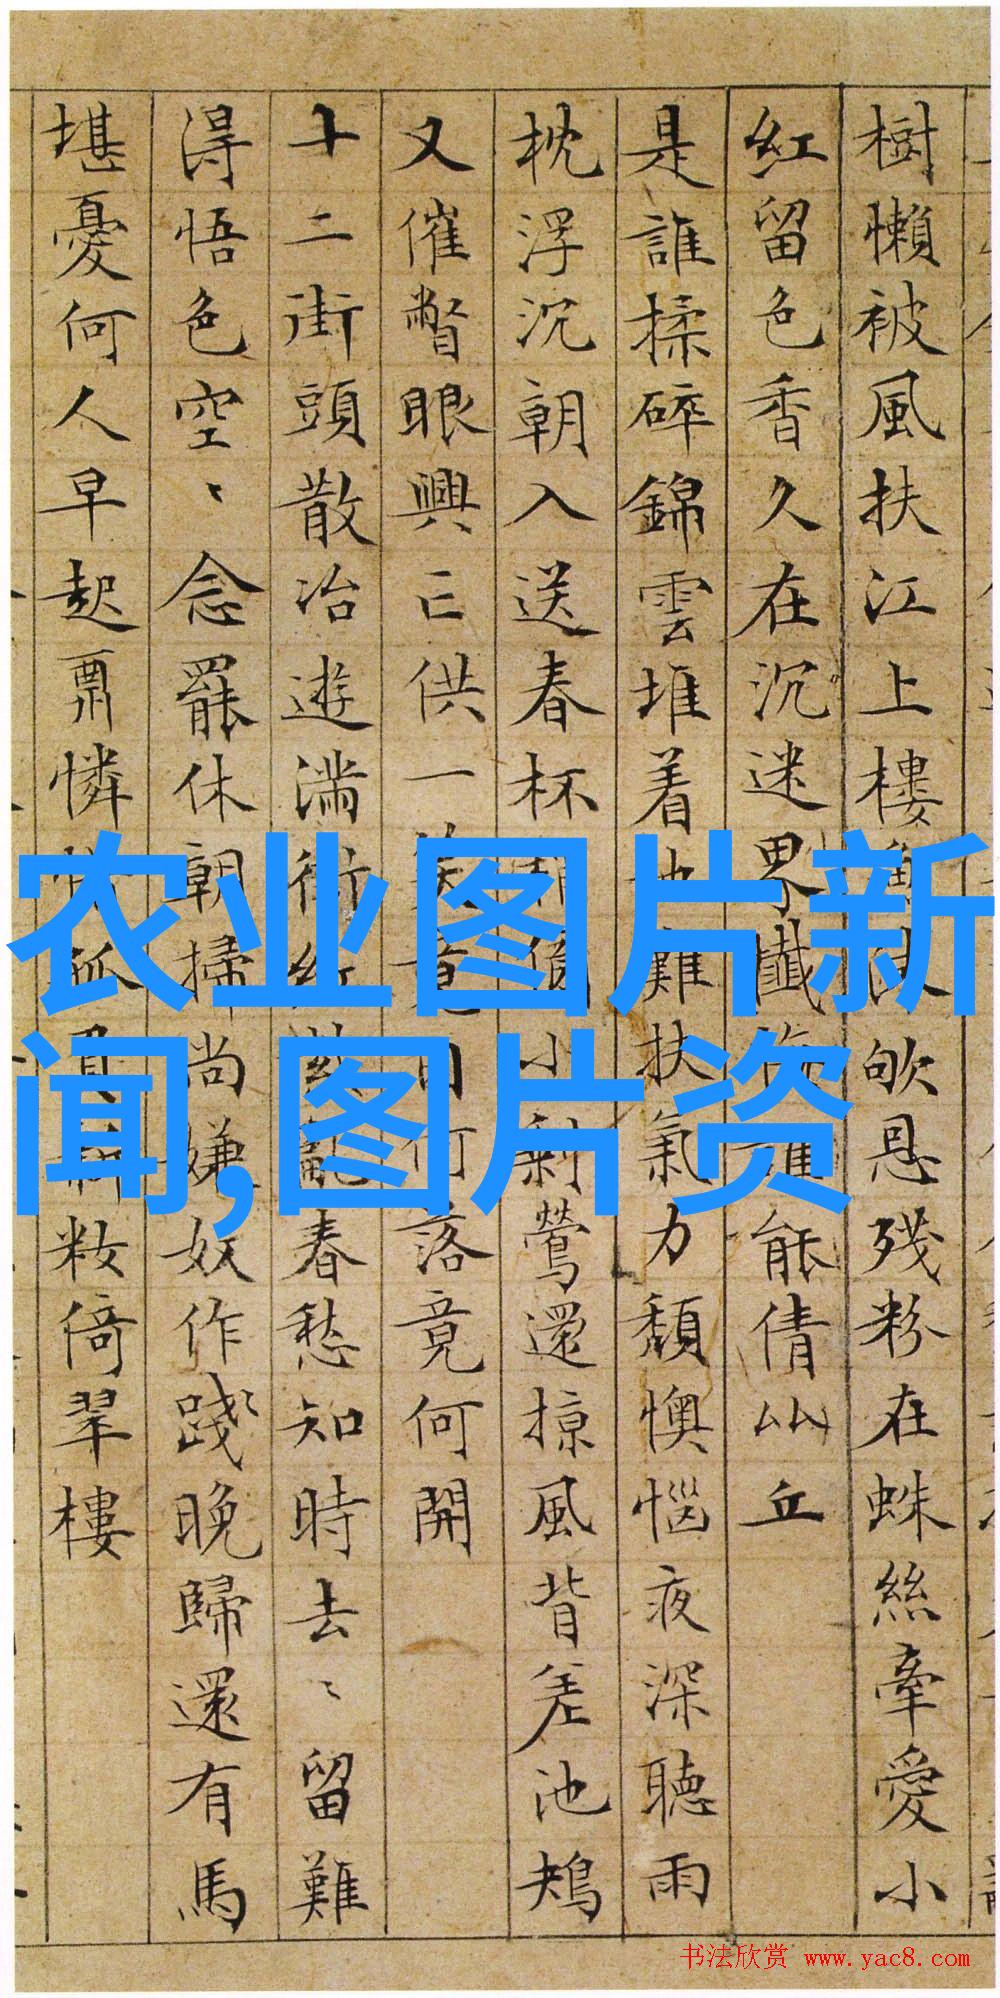 樹懶被風扶江上樓
欹恩殘粉在蛛絲牽愛小
紅留色香久在沉迷界懺
能倩此丘
是誰揉碎錦雲堆着
難扶氣力頹懊惱夜深聽雨
枕浮沉朝入送春杯
小剩鶯還掠風背差池鴂
又催瞥眼興亡供一
落竟何開
十二街頭散冶遊滿街
春愁知時去〻留難
得悟色空〻念罷休朝掃尚嫌奴作踐〻晚歸還有馬
堪憂何人早起肅憐
籹倚翠樓
农业图片新
闻,图片资
书法欣赏 www.yac8.com